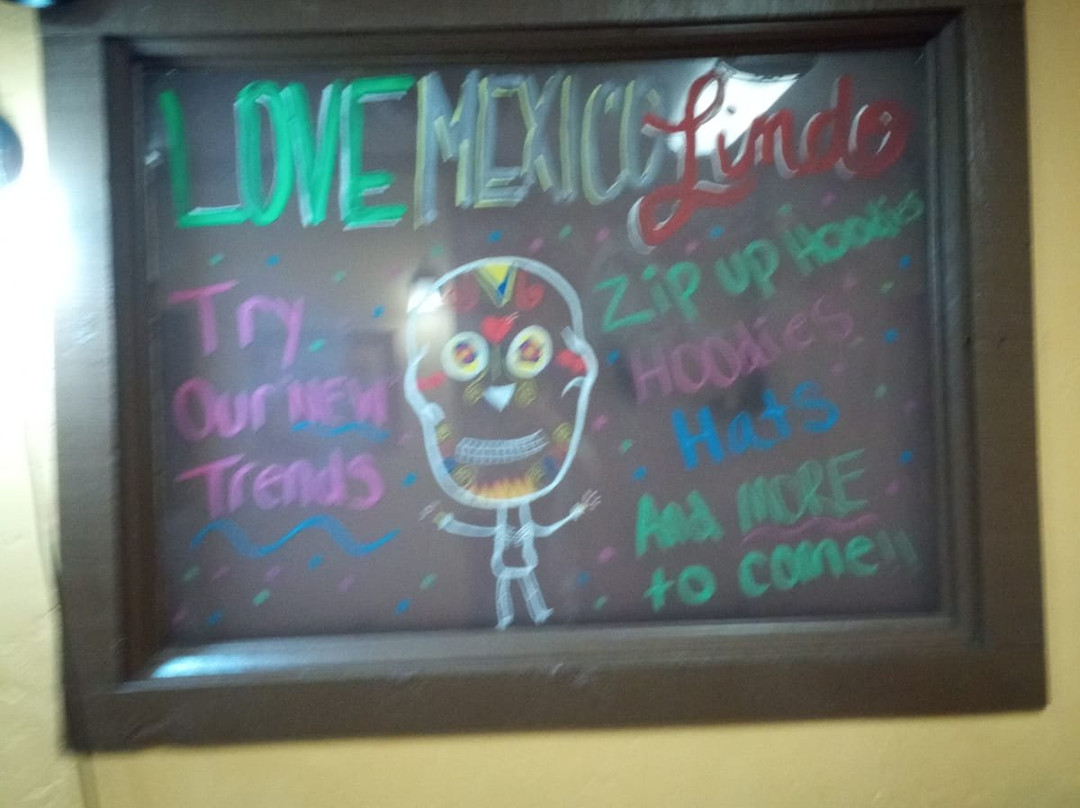 LOVE MEXICO Lindo
Try
Our NEW
Trends
Zip up Hoodies
HOODies
Hats
And MORE
to come!!